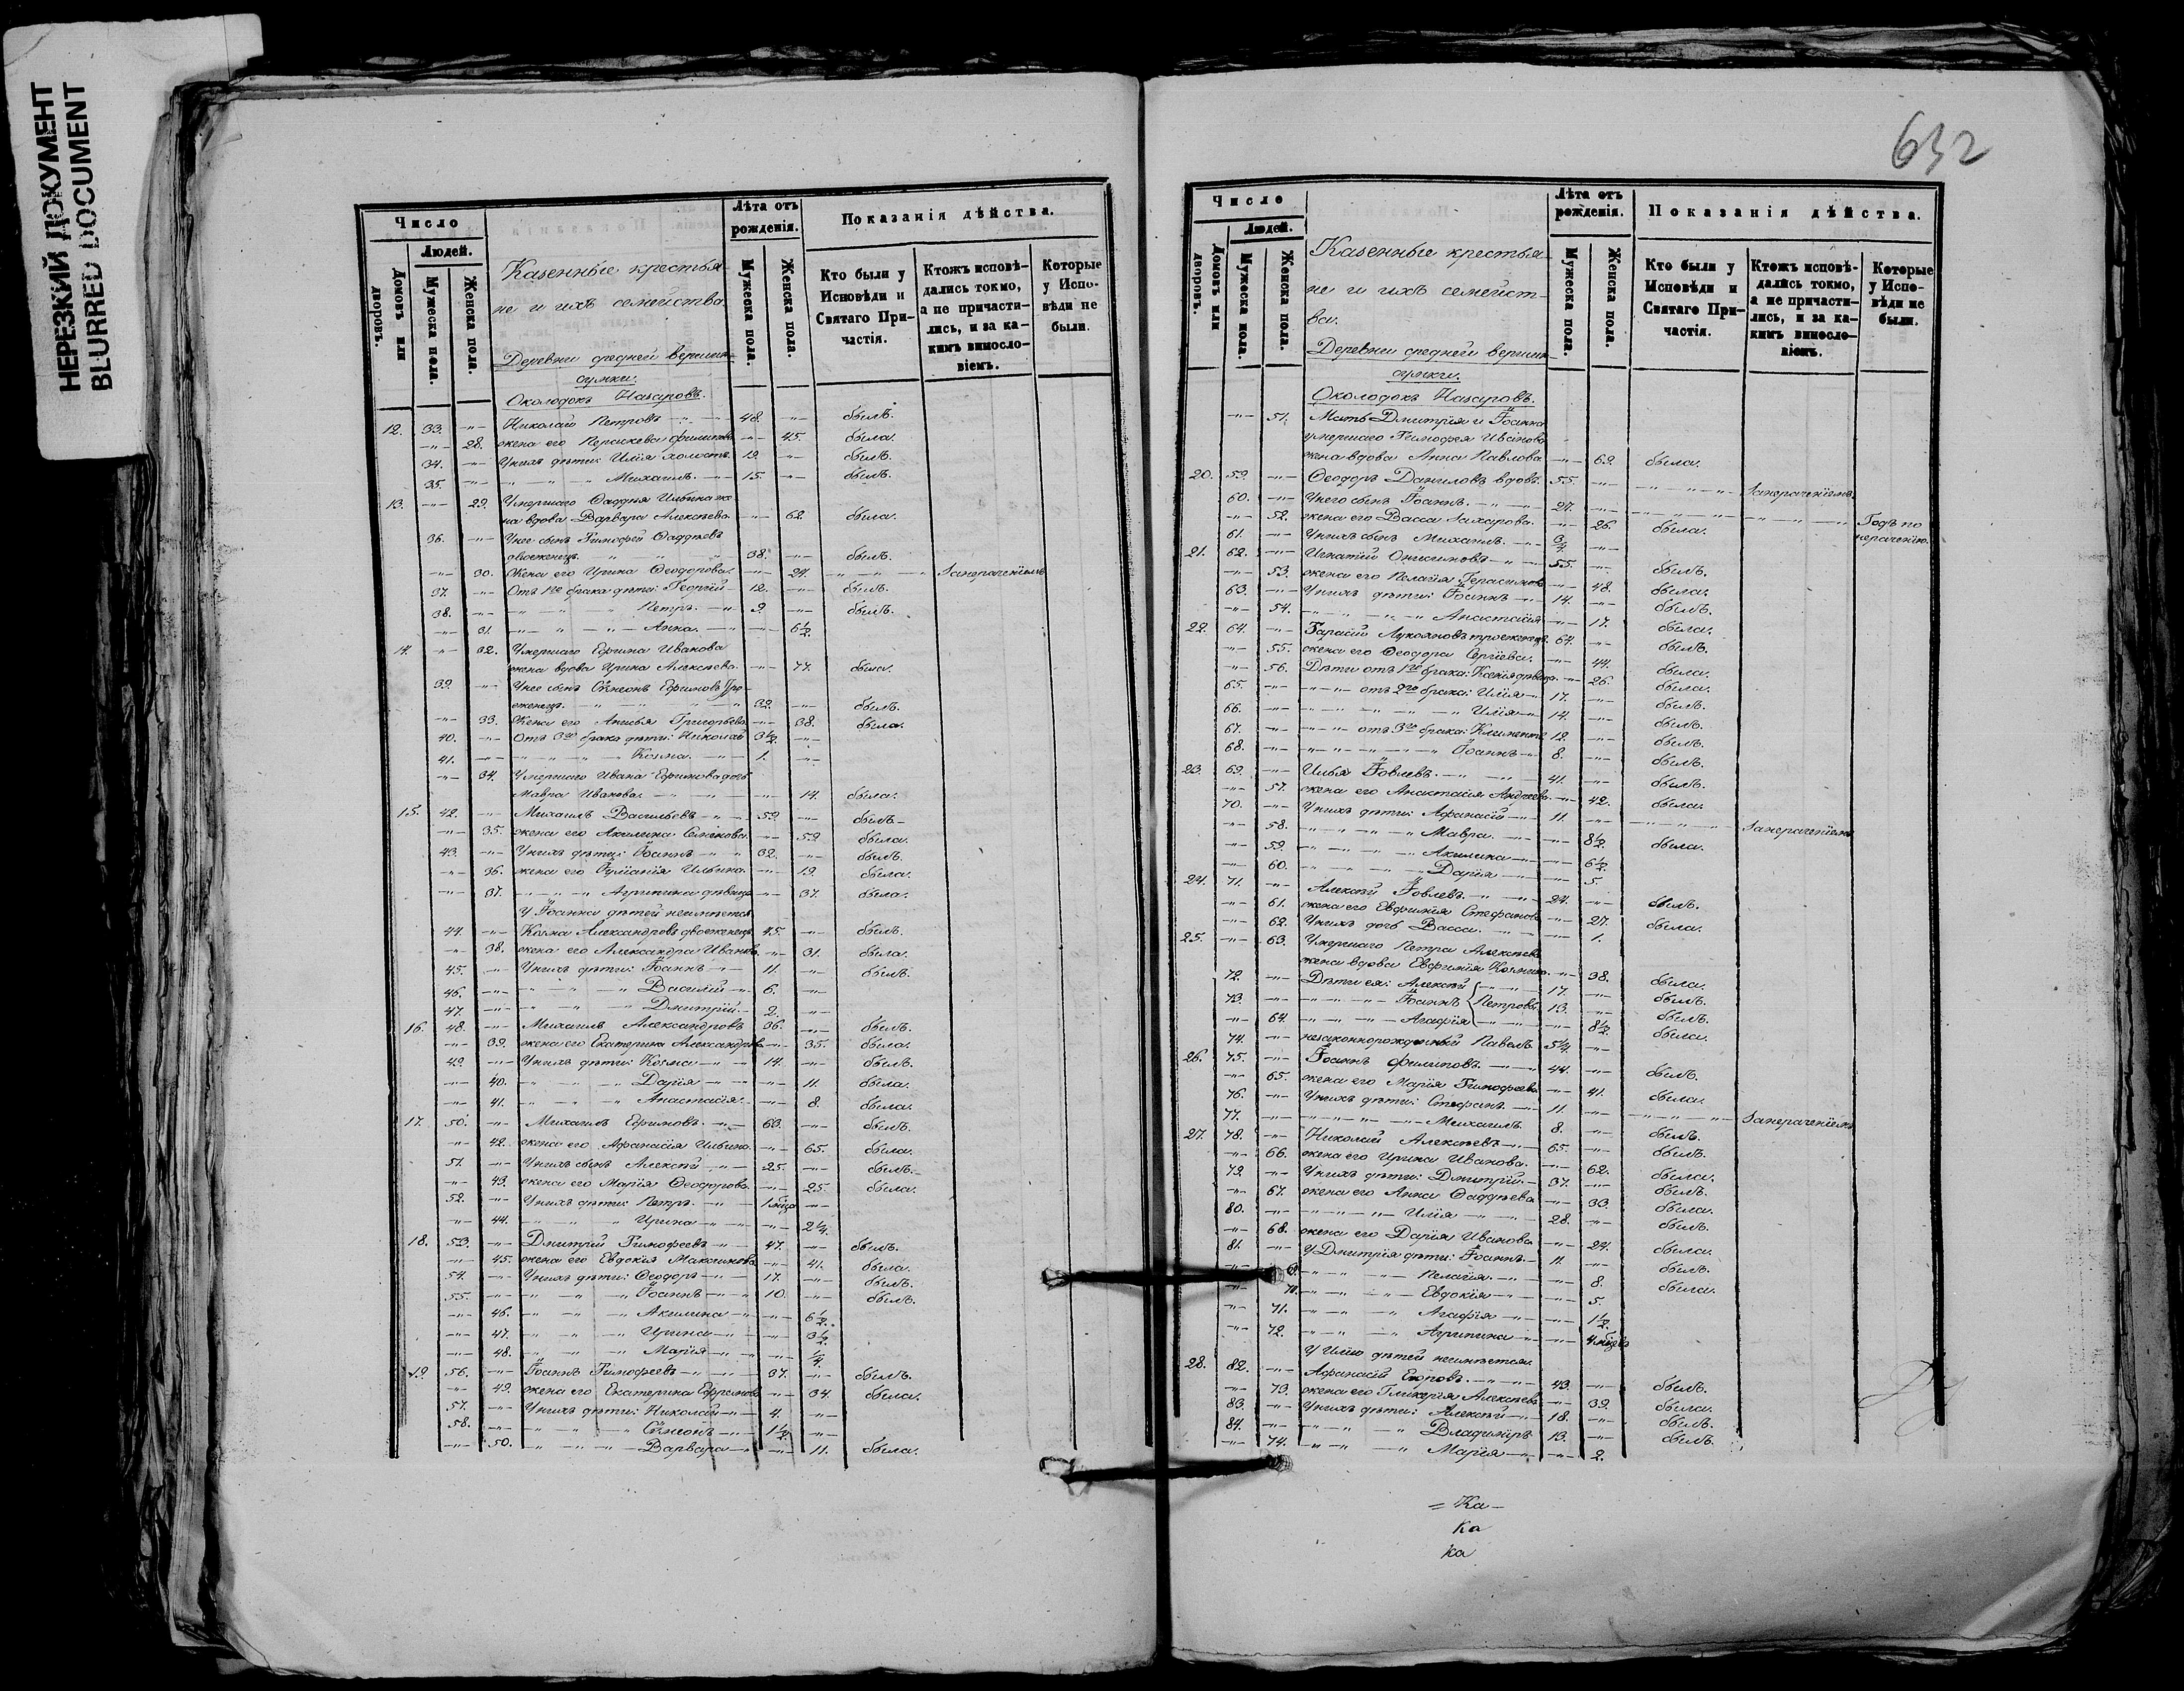 НЕРЕЗКИЙ ДОКУМЕНТ
BLURRED DOCUMENT
Число
Людей.
Домовъ или дворовъ.
Мужеска пола.
Женска пола.
Казенные крестья-
не и ихъ семейства
Деревни средней вершин-
сумки.
Околодокъ Назаровъ.
Лѣта отъ рожденія.
Мужеска пола.
Женска пола.
Показанія дѣйства.
Кто были у Исповѣди и Святаго Причастія.
Ктожъ исповѣ-дались токмо, а не причасти-лись, и за ка-кимъ винослo-віемъ.
Которые у Испо-вѣди не были.
12. 33. -"- Николай Петровъ 48. -"- былъ.
-"- 28. жена его Параскева Филипова -"- 45. была.
34. -"- У нихъ дѣти: Илія холостъ. 19. -"- былъ.
35. -"- Михаилъ. 15. -"- былъ.
13. -"- 29. Умершаго Фаддея Ильина же-
на вдова Варвара Алексѣева -"- 62. была.
36. -"- У нее сынъ Тимофей Фаддѣевъ
двоеженецъ 38. -"- былъ.
-"- 30. Жена его Ирина Ѳеодорова. -"- 24. За нераченіемъ
37. -"- Отъ 1го брака дѣти: Георгій 12. -"- былъ.
38. -"- Петръ. 9. -"- былъ.
-"- 31. Анна. -"- 6½.
14. -"- 32. Умершаго Ефима Иванова
жена вдова Ирина Алексѣева. -"- 77. была.
39. -"- У нее сынъ Сѵмеонъ Ефимовъ Трое-
женецъ. 39. -"- былъ.
-"- 33. Жена его Анисья Григорьева -"- 38. была.
40. -"- Отъ 3го брака дѣти: Николай 3½. -"-
41. -"- Козма. 1. -"-
-"- 34. Умершаго Ивана Ефимова дочь
Мавра Иванова. -"- 14. была.
15. 42. -"- Михаилъ Васильевъ 59. -"- былъ
-"- 35. жена его Акилина Семенова. -"- 59. была.
43. -"- У нихъ дѣти: Іоаннъ 32. -"- былъ.
-"- 36. жена его Іуліанія Ильина. -"- 19. была.
-"- 37. Агрипина дѣвица -"- 37. была.
У Іоанна дѣтей неимѣется
44. -"- Козма Александровъ двоеженецъ 45. -"- былъ.
-"- 38. жена его Александра Иванова. -"- 31. была.
45. -"- У нихъ дѣти: Іоаннъ 11. -"- былъ.
46. -"- Василій 6. -"-
47. -"- Дмитрій 2. -"-
16. 48. -"- Михаилъ Александровъ 36. -"- былъ.
-"- 39. жена его Екатерина Александрова -"- 35. была.
49. -"- У нихъ дѣти: Козма 14. -"- былъ.
-"- 40. Дарія -"- 11. была.
-"- 41. Анастасія -"- 8. была.
17. 50. -"- Михаилъ Ефимовъ. 60. -"- былъ.
-"- 42. жена его Афанасія Ильина. -"- 65. была.
51. -"- У нихъ сынъ Алексѣй 25. -"- былъ.
-"- 43. жена его Марія Ѳеодорова. -"- 25. была.
52. -"- У нихъ дѣти: Петръ. 1 мѣсяца -"-
-"- 44. Ирина -"- 2¼.
18. 53. -"- Дмитрій Тимофеевъ 47. -"- былъ.
-"- 45. жена его Евдокія Максимова. -"- 41. была.
54. -"- У нихъ дѣти: Ѳеодоръ 17. -"- былъ.
55. -"- Іоаннъ 10. -"- былъ.
-"- 46. Акилина -"- 6½.
-"- 47. Ирина -"- 3½.
-"- 48. Марія -"- ¼.
19. 56. -"- Іоаннъ Тимофеевъ 37. -"- былъ.
-"- 49. жена его Екатерина Ефремова -"- 34. была.
57. -"- У нихъ дѣти: Николай 4. -"-
58. -"- Сѵмеонъ 1½. -"-
-"- 50. Варвара -"- 11. была.
632
Число
Людей.
Домовъ или дворовъ.
Мужеска пола.
Женска пола.
Казенные крестья-
не и ихъ семейст-
ва.
Деревни средней вершин-
сумки.
Околодокъ Назаровъ.
Лѣта отъ рожденія.
Мужеска пола.
Женска пола.
Показанія дѣйства.
Кто были у Исповѣди и Святаго Причастія.
Ктожъ исповѣ-дались токмо, а не причасти-лись, и за ка-кимъ винослo-віемъ.
Которые у Испо-вѣди не были.
-"- 51. Мать Дмитрія и Іоанна
умершаго Тимофея Иванова
жена вдова Анна Павлова -"- 69. была.
20. 59. -"- Ѳеодоръ Даниловъ вдовъ. 55. -"- За нераченіемъ
60. -"- У него сынъ Іоаннъ. 27. -"- Годъ по нераченію.
-"- 52. жена его Васса Захарова. -"- 26. была.
61. -"- У нихъ сынъ Михаилъ. ¾. -"-
21. 62. -"- Игнатій Онисимовъ 55. -"- былъ.
-"- 53. жена его Пелагія Герасимова -"- 48. была.
63. -"- У нихъ дѣти: Іоаннъ 14. -"- былъ.
-"- 54. Анастасія -"- 17. была.
22. 64. -"- Тарасій Лукояновъ троеженецъ. 64. -"- былъ.
-"- 55. жена его Ѳеодора Сергіева. -"- 44. была.
-"- 56. Дѣти отъ 1го брака: Ксенія дѣвица -"- 26. была.
65. -"- отъ 2го брака: Илія 17. -"- былъ.
66. -"- Илія 14. -"- былъ.
67. -"- отъ 3го брака: Климентъ 12. -"- былъ.
68. -"- Іоаннъ 8. -"- былъ.
23. 69. -"- Илья Іовлевъ. 41. -"- былъ.
-"- 57. жена его Анастасія Андреева. -"- 42. была.
70. -"- У нихъ дѣти: Афанасій 11. -"- За нераченіемъ
-"- 58. Мавра. -"- 8½. была.
-"- 59. Акилина -"- 6½.
-"- 60. Дарія -"- 5.
24. 71. -"- Алексѣй Іовлевъ. 24. -"- былъ.
-"- 61. жена его Евфимія Стефанова -"- 27. была.
-"- 62. У нихъ дочь Васса. -"- 1.
25. -"- 63. Умершаго Петра Алексѣева
жена вдова Евфимія Козмина. -"- 38. была.
72. -"- Дѣти ея: Алексѣй 17. -"- былъ.
73. -"- Іоаннъ Петровы. 13. -"- былъ.
-"- 64. Агафія -"- 8½. была.
74. -"- незаконнорожденный Павелъ 5¼. -"-
26. 75. -"- Іоаннъ Филиповъ. 44. -"- былъ.
-"- 65. жена его Марія Тимофеева -"- 41. была.
76. -"- У нихъ дѣти: Стефанъ. 11. -"- За нераченіемъ
77. -"- Михаилъ 8. -"- былъ.
27. 78. -"- Николай Алексѣевъ 65. -"- былъ.
-"- 66. жена его Ирина Иванова. -"- 62. была.
79. -"- У нихъ дѣти: Дмитрій. 37. -"- былъ.
-"- 67. жена его Анна Фаддѣева -"- 33. была.
80. -"- Илія 28. -"- былъ.
-"- 68. жена его Дарія Иванова -"- 24. была.
81. -"- У Дмитрія дѣти: Іоаннъ 11. -"- былъ.
Пелагія. -"- 8. была.
70. Евдокія -"- 5.
-"- 71. Агафія -"- 1½.
-"- 72. Агрипина -"- 4 мѣсяцa
У Иліи дѣтей неимѣется.
28. 82. -"- Афанасій Егоровъ. 43. -"- былъ.
-"- 73. жена его Гликерія Алексѣева -"- 39. была.
83. -"- У нихъ дѣти: Алексѣй 18. -"- былъ.
84. -"- Владиміръ 13. -"- былъ.
-"- 74. Марія -"- 2.
= Ка -
Ка
ка